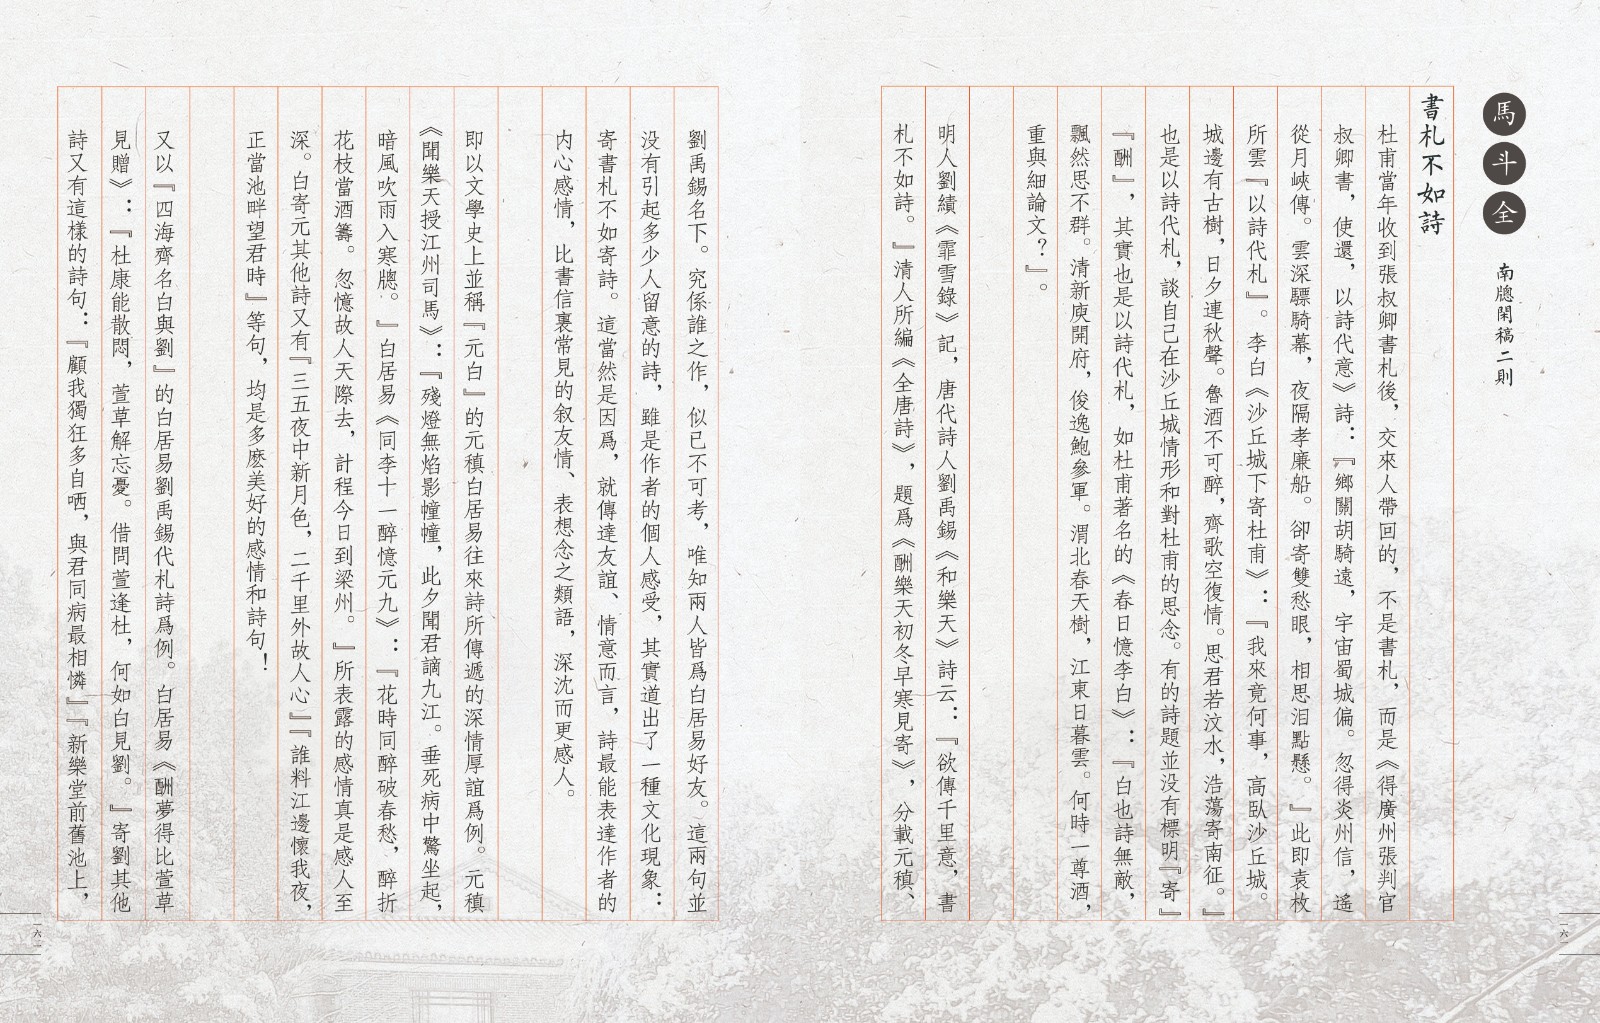 馬斗全
南窗閑稿二則
書札不如詩
杜甫當年收到張叔卿書札後，交來人帶回的，不是書札，而是《得廣州張判官
叔卿書，使還，以詩代意》詩：『鄉關胡騎遠，宇宙蜀城偏。忽得炎州信，遙
從月峽傳。雲深驃騎幕，夜隔孝廉船。卻寄雙愁眼，相思泪點懸。』此即袁枚
所雲『以詩代札』。李白《沙丘城下寄杜甫》：『我來竟何事，高臥沙丘城。
城邊有古樹，日夕連秋聲。魯酒不可醉，齊歌空復情。思君若汶水，浩蕩寄南征。』
也是以詩代札，談自己在沙丘城情形和對杜甫的思念。有的詩題並没有標明『寄』
『酬』，其實也是以詩代札，如杜甫著名的《春日憶李白》：『白也詩無敵，
飄然思不群。清新庾開府，俊逸鮑參軍。渭北春天樹，江東日暮雲。何時一尊酒，
重與細論文？』。
明人劉績《霏雪錄》記，唐代詩人劉禹錫《和樂天》詩云：『欲傳千里意，書
札不如詩。』清人所編《全唐詩》，題爲《酬樂天初冬早寒見寄》，分載元稹、
劉禹錫名下。究係誰之作，似已不可考，唯知兩人皆爲白居易好友。這兩句並
没有引起多少人留意的詩，雖是作者的個人感受，其實道出了一種文化現象：
寄書札不如寄詩。這當然是因爲，就傳達友誼、情意而言，詩最能表達作者的
内心感情，比書信裏常見的叙友情、表想念之類語，深沈而更感人。
即以文學史上並稱『元白』的元稹白居易往來詩所傳遞的深情厚誼爲例。元稹
《聞樂天授江州司馬》：『殘燈無焰影幢幢，此夕聞君謫九江。垂死病中驚坐起，
暗風吹雨入寒牕。』白居易《同李十一醉憶元九》：『花時同醉破春愁，醉折
花枝當酒籌。忽憶故人天際去，計程今日到梁州。』所表露的感情真是感人至
深。白寄元其他詩又有『三五夜中新月色，二千里外故人心』『誰料江邊懷我夜，
正當池畔望君時』等句，均是多麽美好的感情和詩句！
又以『四海齊名白與劉』的白居易劉禹錫代札詩爲例。白居易《酬夢得比萱草
見贈》：『杜康能散悶，萱草解忘憂。借問萱逢杜，何如白見劉。』寄劉其他
詩又有這樣的詩句：『顧我獨狂多自哂，與君同病最相憐』『新樂堂前舊池上，